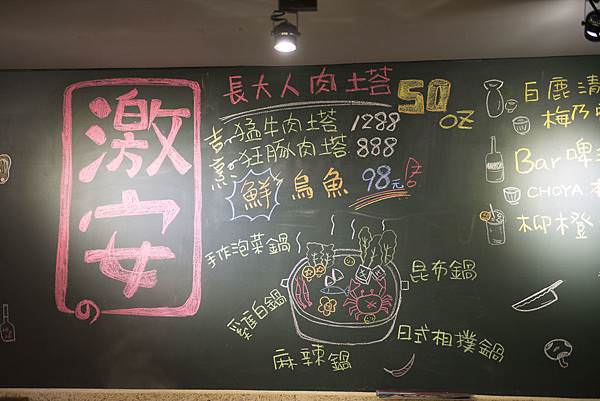 激安の
長大人肉土塔 50 OZ
吉烹
猛牛肉土塔 1288
狂豚肉土塔 888
鮮 烏魚 98元
手作泡菜鍋
昆布鍋
麻辣鍋
日式相撲鍋
白鹿清
梅乃
Bar啤
CHOYA
柳橙